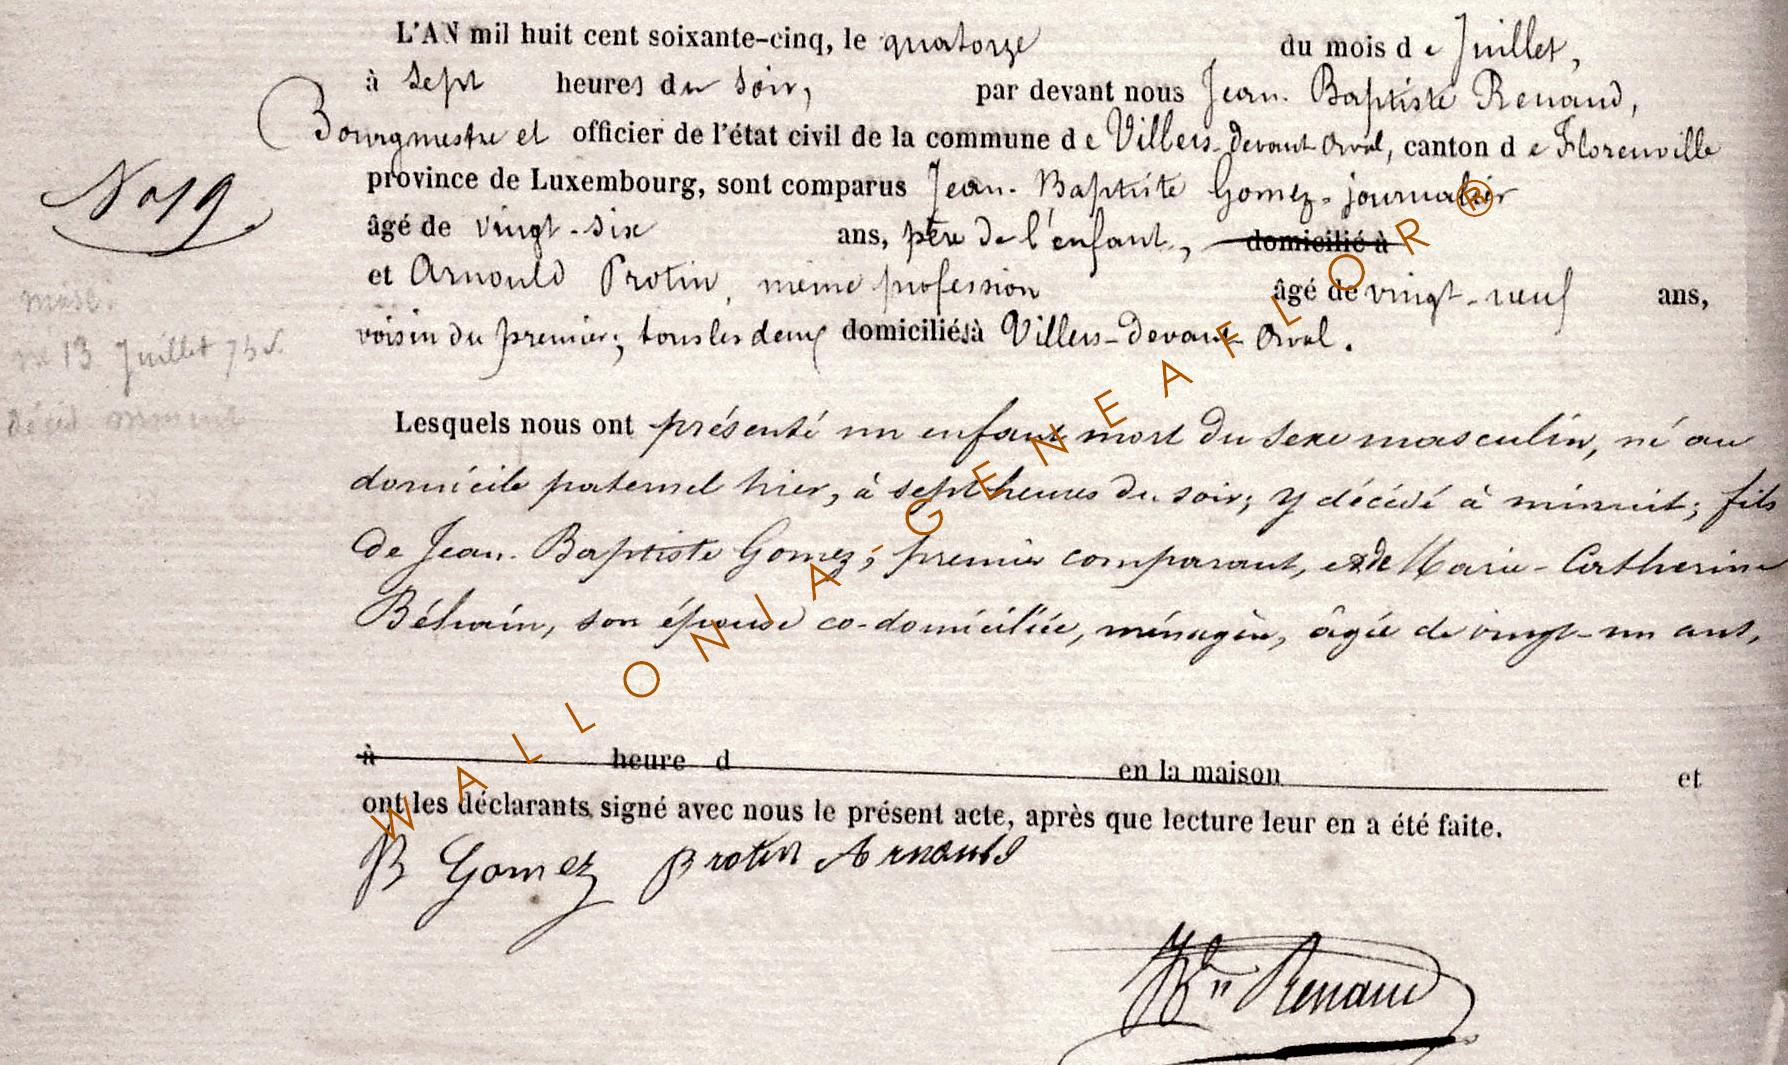 L'AN mil huit cent soixante-cinq, le quatorze du mois de Juillet,
à Sept heures du Soir, par devant nous Jean-Baptiste Renaud,
Bourgmestre et officier de l'état civil de la commune de Villers-devant-Orval, canton de Florenville
No 19
province de Luxembourg, sont comparus Jean-Baptiste Gomez-journalier
âgé de vingt-six ans, père de l'enfant, domicilié à
et Arnould Protin, même profession âgé de vingt-neuf ans,
masc.
né 13 Juillet 7 h s.
décéd minuit
voisin du premier; tous les deux domiciliés à Villers-devant-Orval.
Lesquels nous ont présenté un enfant mort du sexe masculin, né au
domicile paternel hier, à sept heures du soir; y décédé à minuit; fils
de Jean-Baptiste Gomez, premier comparant, et de Marie-Catherine
son épouse co-domiciliée, ménagère, âgée de vingt-un ans,
à heure d en la maison et
ont les déclarants signé avec nous le présent acte, après que lecture leur en a été faite.
JB Gomez Protin Arnould
Renaud
WALLONIA-GENEAFLOR®